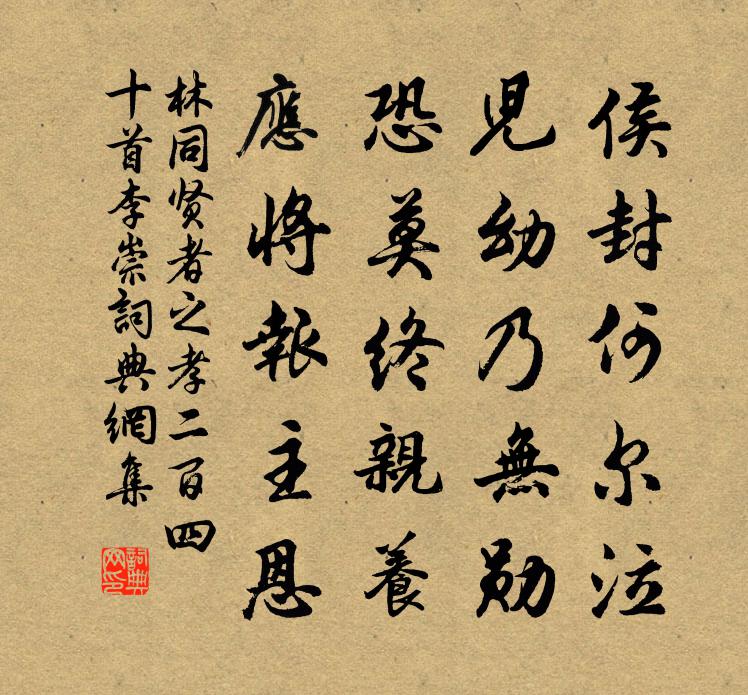 侯封何尔泣
児幼乃無勋
恐莫终親養
應將報主恩
林同贤者之孝二百四
十首李崇詞典網集
詞典网印